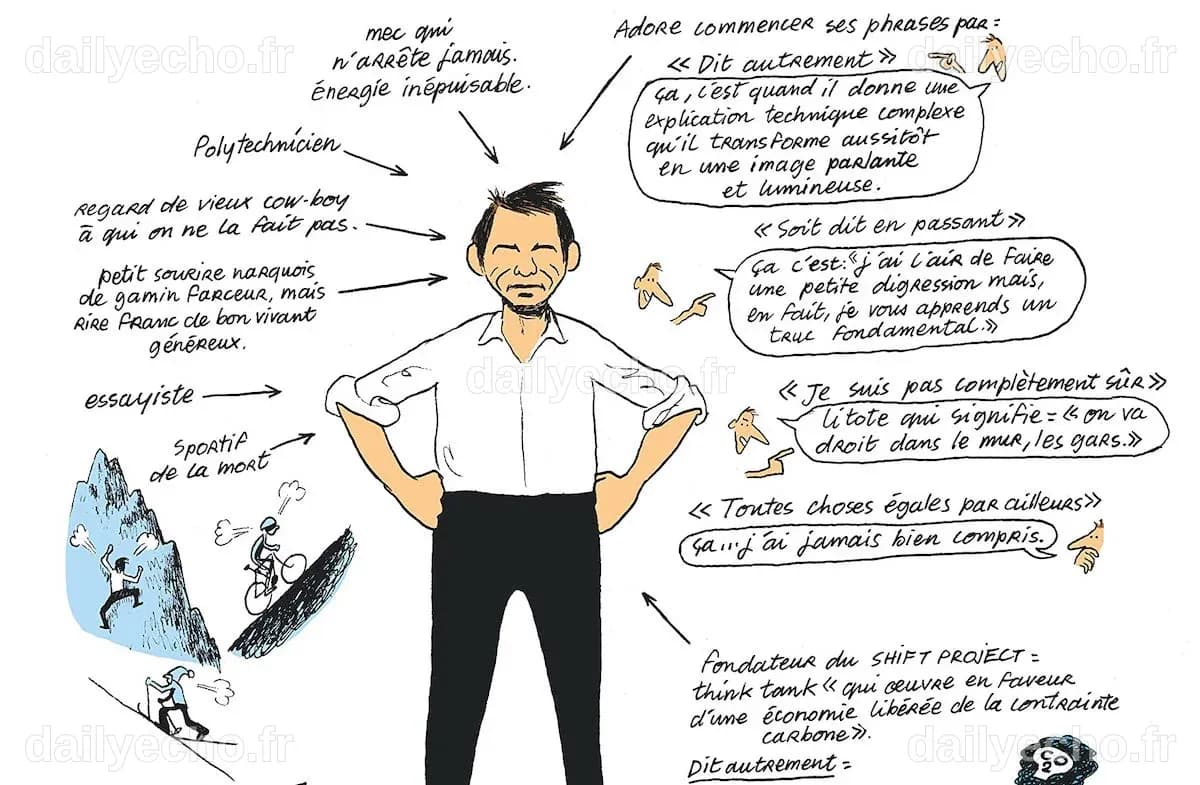 dailyecho.fr
dailyecho.fr
mec qui
n'arrête jamais.
énergie inépuisable.
Polytechnicien
regard de vieux cow-boy
à qui on ne la fait pas.
petit sourire narquois
de gamin farceur, mais
rire franc de bon vivant
généreux.
essayiste
sportif
de la mort
Adore commencer ses phrases par =
« Dit autrement »
ça, c'est quand il donne une
explication technique complexe
qu'il transforme aussitôt
en une image parlante
et lumineuse.
« Soit dit en passant »
ça c'est : « j'ai l'air de faire
une petite digression mais,
en fait, je vous apprends un
truc fondamental. »
dailyecho.fr
« Je suis pas complètement sûr »
litote qui signifie = « on va
droit dans le mur, les gars. »
« Toutes choses égales par ailleurs »
ça... j'ai jamais bien compris.
fondateur du SHIFT PROJECT =
think tank « qui œuvre en faveur
d'une économie libérée de la contrainte
carbone ».
Dit autrement =
CO2
dailyecho.fr
dailyecho.fr